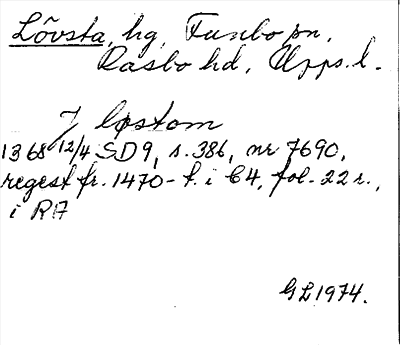 Lövsta, hg, Funbo sn,
Rasbo hd, Upps. l.
J løstom
1368 12/4 SD9, s. 386, nr 7690,
regest fr. 1470-t. i C4, fol. 22 r.,
i RA
GL 1974.